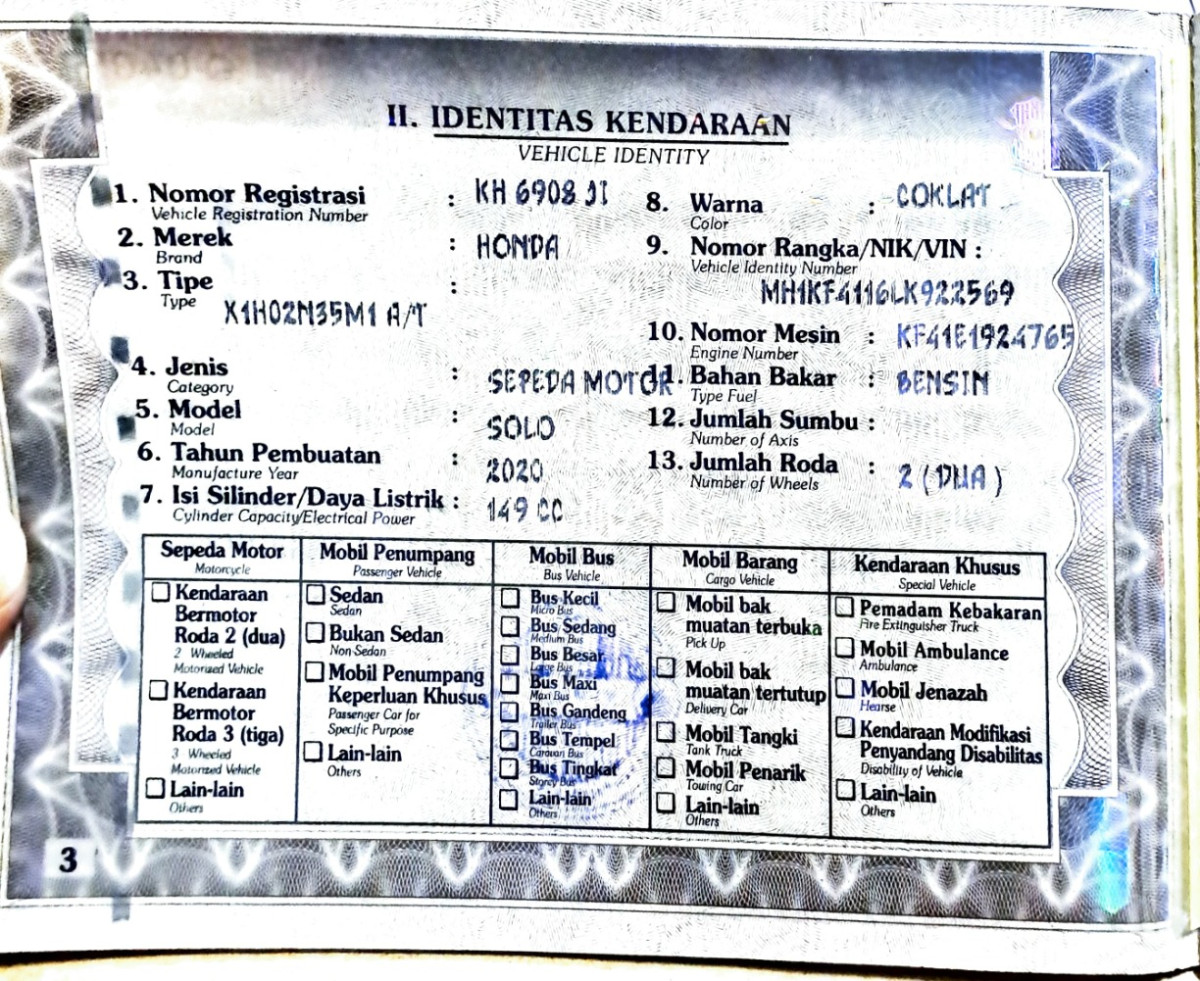 II. IDENTITAS KENDARAAN
VEHICLE IDENTITY
1. Nomor Registrasi : KH 6908 JI
Vehicle Registration Number
2. Merek : HONDA
Brand
3. Tipe :
Type X1H02N35M1 A/T
4. Jenis : SEPEDA MOTOR
Category
5. Model : SOLO
Model
6. Tahun Pembuatan : 2020
Manufacture Year
7. Isi Silinder/Daya Listrik : 149 CC
Cylinder Capacity/Electrical Power
8. Warna : COKLAT
Color
9. Nomor Rangka/NIK/VIN :
Vehicle Identity Number
MH1KF4116LK922569
10. Nomor Mesin : KF41E1924765
Engine Number
11. Bahan Bakar : BENSIN
Type Fuel
12. Jumlah Sumbu :
Number of Axis
13. Jumlah Roda : 2 (DUA)
Number of Wheels
Sepeda Motor
Motorcycle
Kendaraan
Bermotor
Roda 2 (dua)
2 Wheeled
Motorized Vehicle
Kendaraan
Bermotor
Roda 3 (tiga)
3 Wheeled
Motorized Vehicle
Lain-lain
Others
Mobil Penumpang
Passenger Vehicle
Sedan
Sedan
Bukan Sedan
Non-Sedan
Mobil Penumpang
Keperluan Khusus
Passenger Car for
Specific Purpose
Lain-lain
Others
Mobil Bus
Bus Vehicle
Bus Kecil
Micro Bus
Bus Sedang
Medium Bus
Bus Besar
Large Bus
Bus Maxi
Maxi Bus
Bus Gandeng
Trailer Bus
Bus Tempel
Caravan Bus
Bus Tingkat
Storey Bus
Lain-lain
Others
Mobil Barang
Cargo Vehicle
Mobil bak
muatan terbuka
Pick Up
Mobil bak
muatan tertutup
Delivery Car
Mobil Tangki
Tank Truck
Mobil Penarik
Towing Car
Lain-lain
Others
Kendaraan Khusus
Special Vehicle
Pemadam Kebakaran
Fire Extinguisher Truck
Mobil Ambulance
Ambulance
Mobil Jenazah
Hearse
Kendaraan Modifikasi
Penyandang Disabilitas
Disability of Vehicle
Lain-lain
Others
3